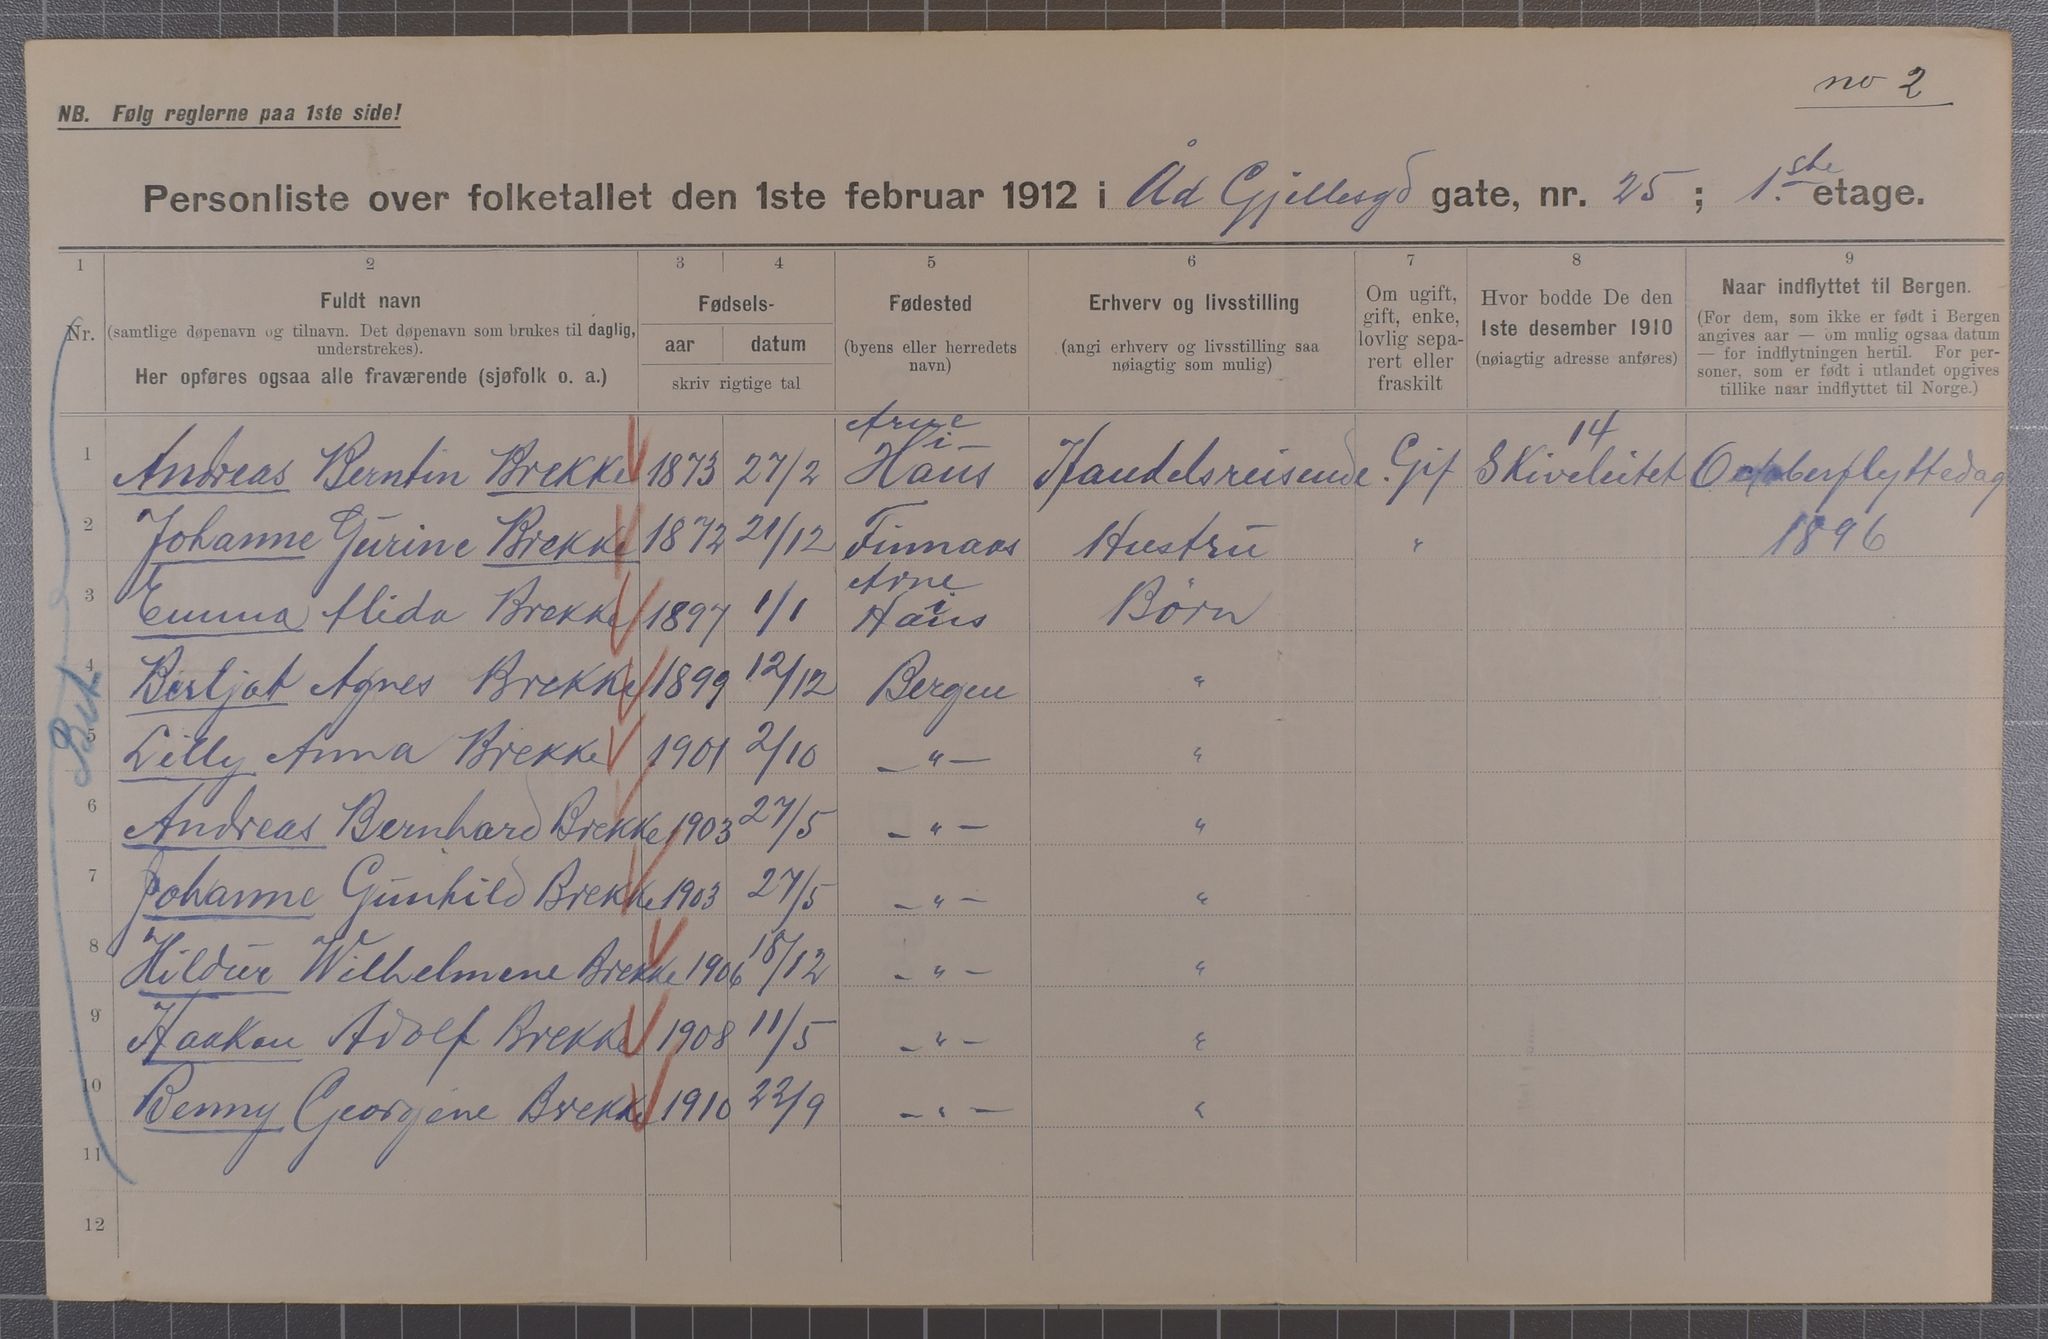 no 2
NB. Følg reglerne paa 1ste side!
Personliste over folketallet den 1ste februar 1912 i Ad Gjellesgd gate, nr. 25 ; 1.ste etage.
1 2 3 4 5 6 7 8 9
Nr.
Fuldt navn
(samtlige døpenavn og tilnavn. Det døpenavn som brukes til daglig,
understrekes).
Her opføres ogsaa alle fraværende (sjøfolk o. a.)
Fødsels-
aar datum
skriv rigtige tal
Fødested
(byens eller herredets
navn)
Erhverv og livsstilling
(angi erhverv og livsstilling saa
nøiagtig som mulig)
Om ugift,
gift, enke,
lovlig sepa-
rert eller
fraskilt
Hvor bodde De den
1ste desember 1910
(nøiagtig adresse anføres)
Naar indflyttet til Bergen.
(For dem, som ikke er født i Bergen
angives aar — om mulig ogsaa datum
— for indflytningen hertil. For per-
soner, som er født i utlandet opgives
tillike naar indflyttet til Norge.)
Arne i
1 Andreas Berntin Brekke 1873 27/2 Haus Handelsreisende. Gif Skiveleitet 14 Octoberflyttedag
2 Johanne Gurine Brekke 1872 21/12 Finnaas Hustru " 1896
Arne i
3 Emma Alida Brekke 1897 1/1 Haus Børn
4 Berljot Agnes Brekke 1899 12/12 Bergen "
5 Lilly Anna Brekke 1901 2/10 — " — "
6 Andreas Bernhard Brekke 1903 27/5 — " — "
7 Johanne Gunhild Brekke 1903 27/5 — " — "
8 Hildur Wilhelmene Brekke 1906 18/12 — " — "
9 Haakon Adolf Brekke 1908 11/5 — " — "
10 Benny Georgene Brekke 1910 22/9 — " — "
11
12